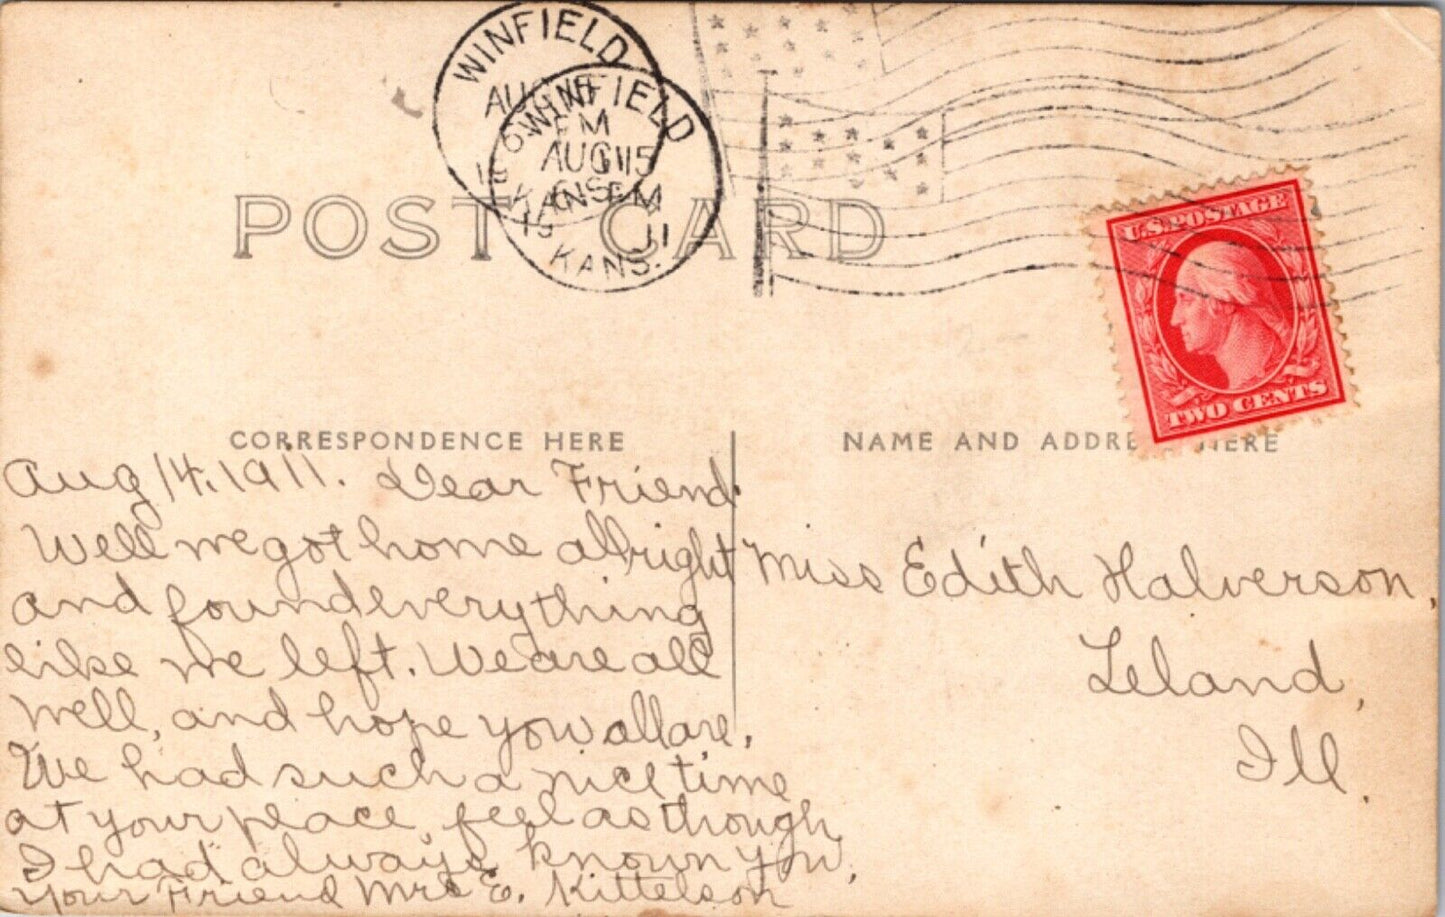 WINFIELD
AUG
PM
KANS.
WINFIELD
AUG 15
PM
19 11
KANS.
U.S. POSTAGE
TWO CENTS
POST CARD
CORRESPONDENCE HERE
NAME AND ADDRE HERE
Aug 14. 1911. Dear Friend.
Well we got home allright
and found everything
like we left. We are all
well, and hope you all are,
We had such a nice time
at your place, feel as though
I had always known you,
Your Friend Mrs E. Kittelson
Miss Edith Halverson,
Leland,
Ill.